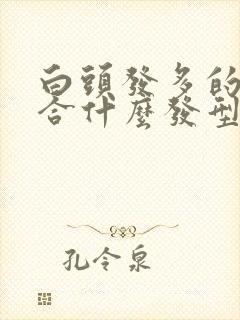 白頭發多的
合什麼發型
孔令泉